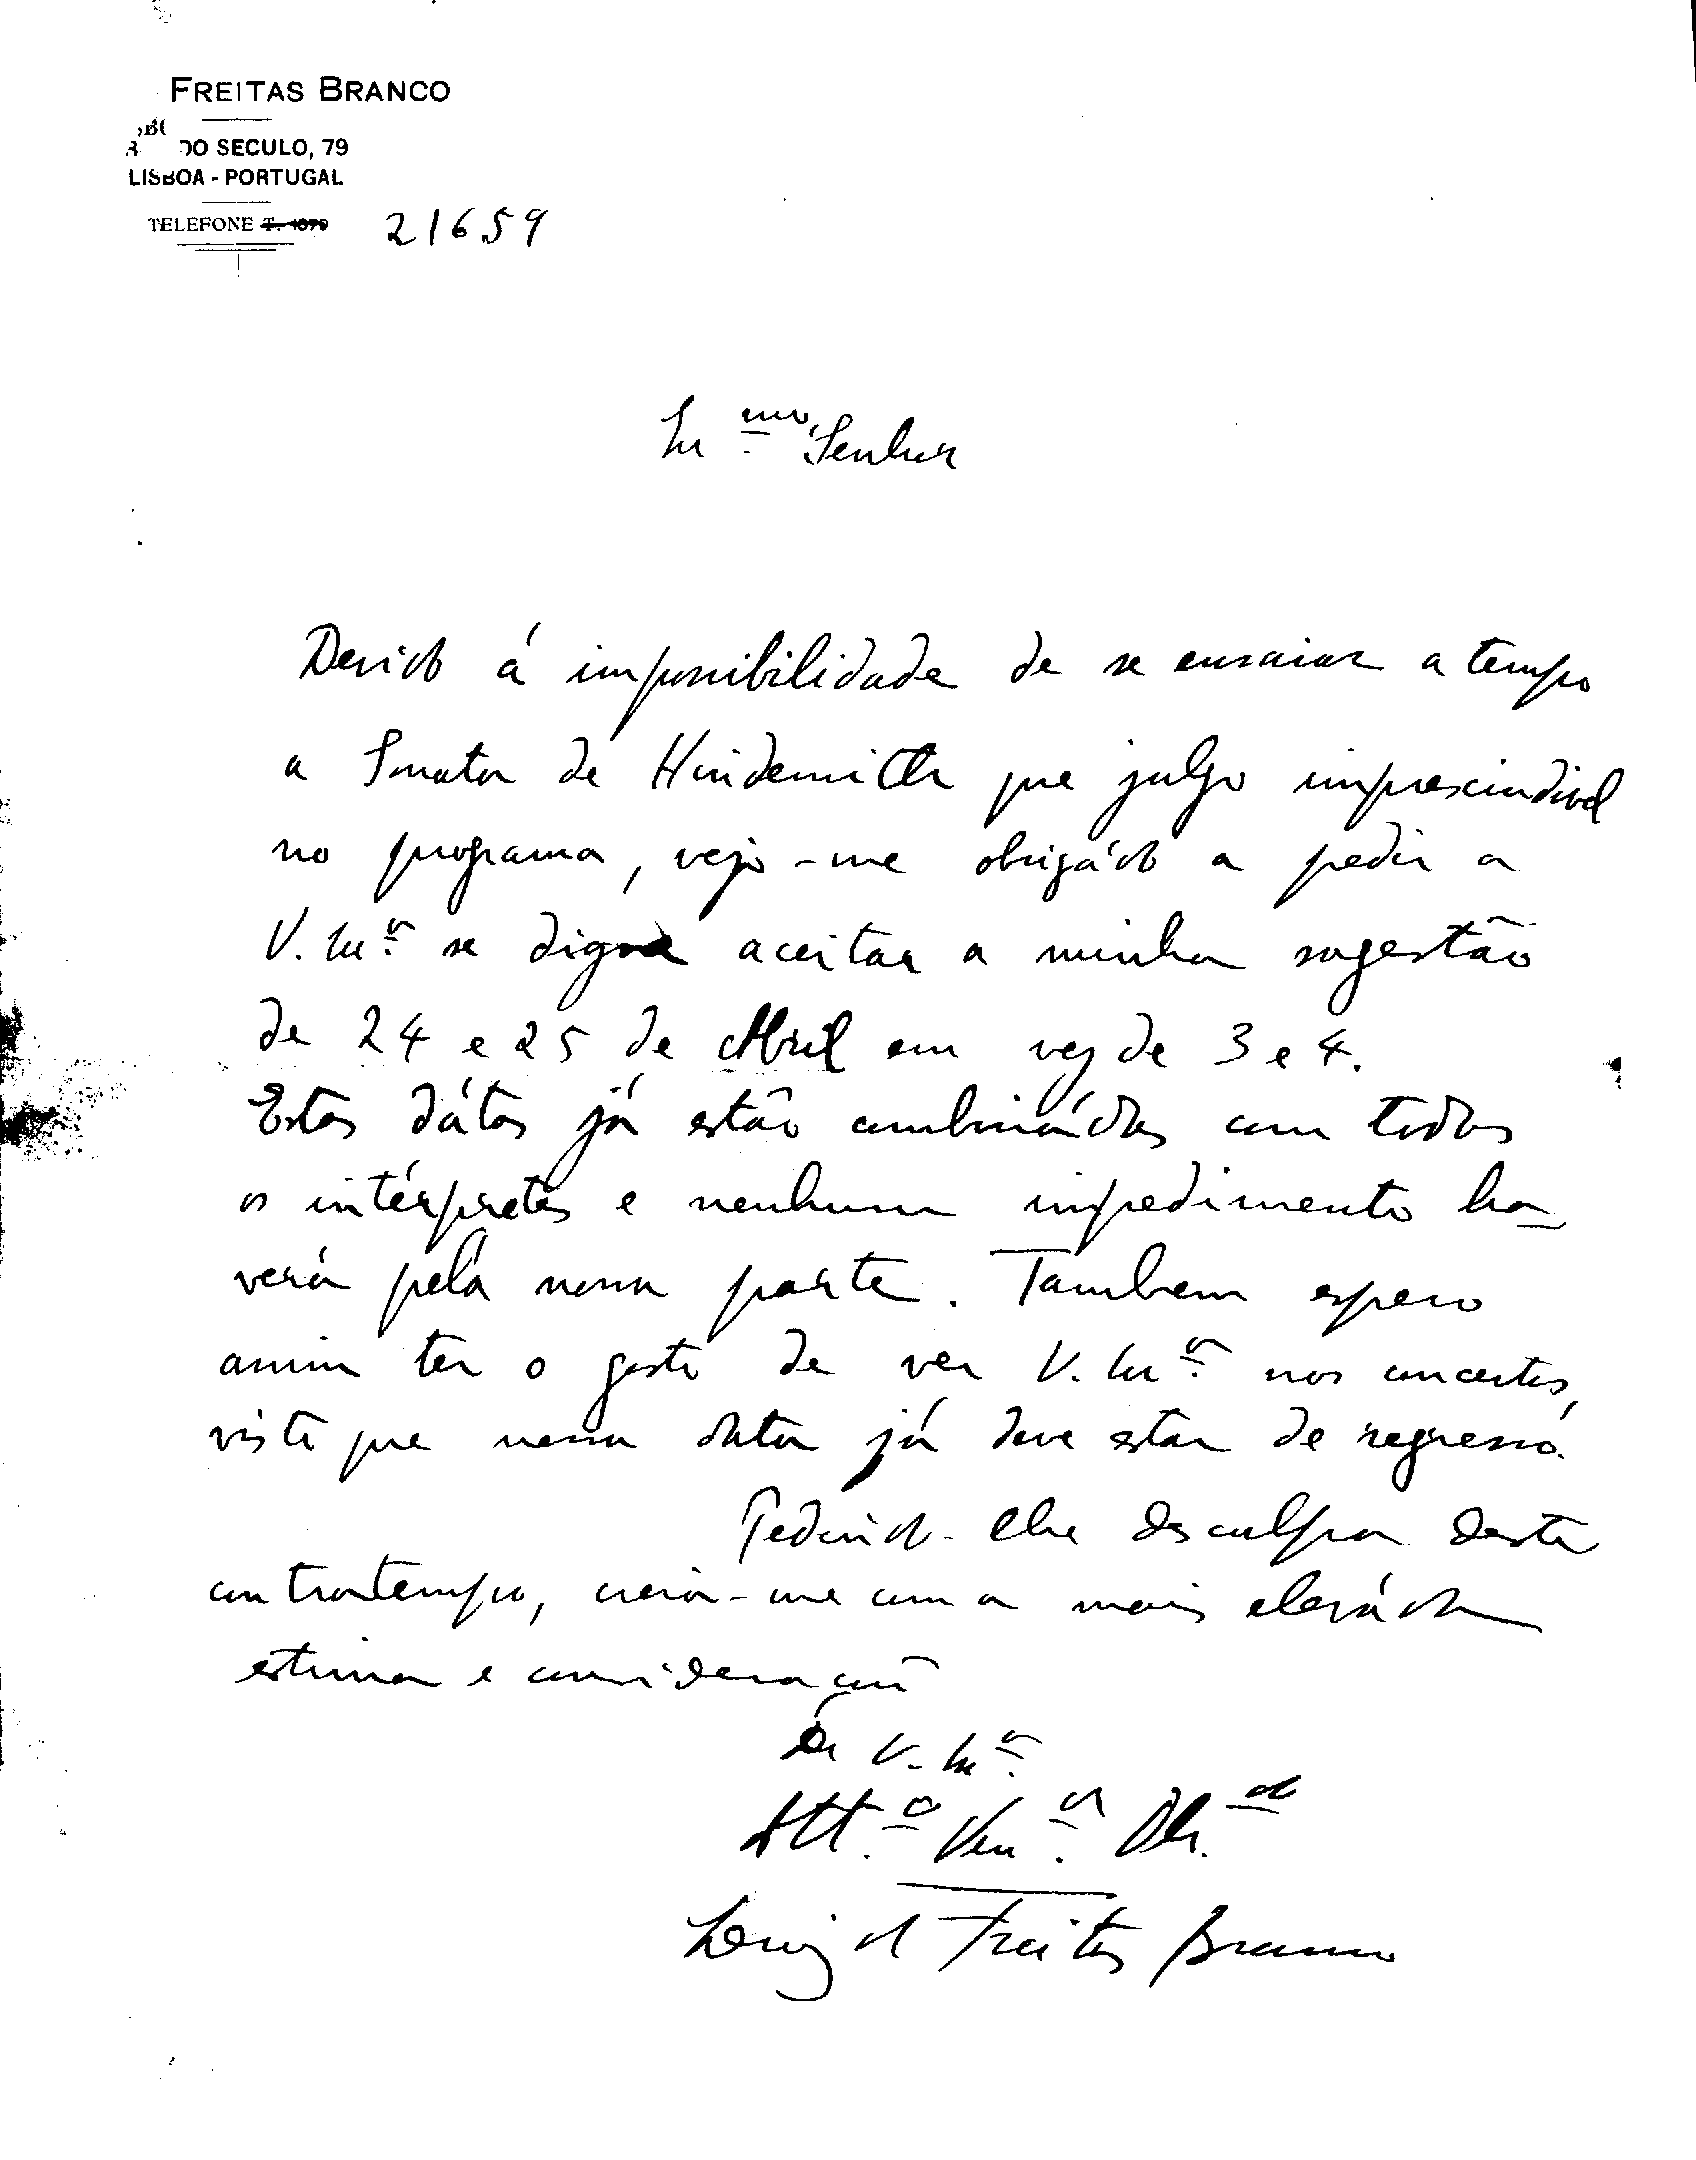 FREITAS BRANCO
DO SECULO, 79
LISBOA - PORTUGAL
TELEFONE T. 1079 21659
Ex.mo Senhor
Devido á impossibilidade de se ensaiar a tempo
a Sonata de Hindemith que julgo imprescindivel
no programa, vejo-me obrigádo a pedir a
V. Ex.a se digne aceitar a minha sugestão
de 24 e 25 de Abril em vez de 3 e 4.
Estas dátas já estão combinádas com todos
os intérpretes e nenhum impedimento ha-
verá pela nossa parte. Tambem espero
assim ter o gosto de ver V. Ex.a nos concertos,
visto que nessa data já deve estar de regresso.
Pedindo-lhe desculpa deste
contratempo, creia-me com a mais eleváda
estima e consideração
De V. Ex.a
Att.o Ven.or Ob.do
Luiz de Freitas Branco